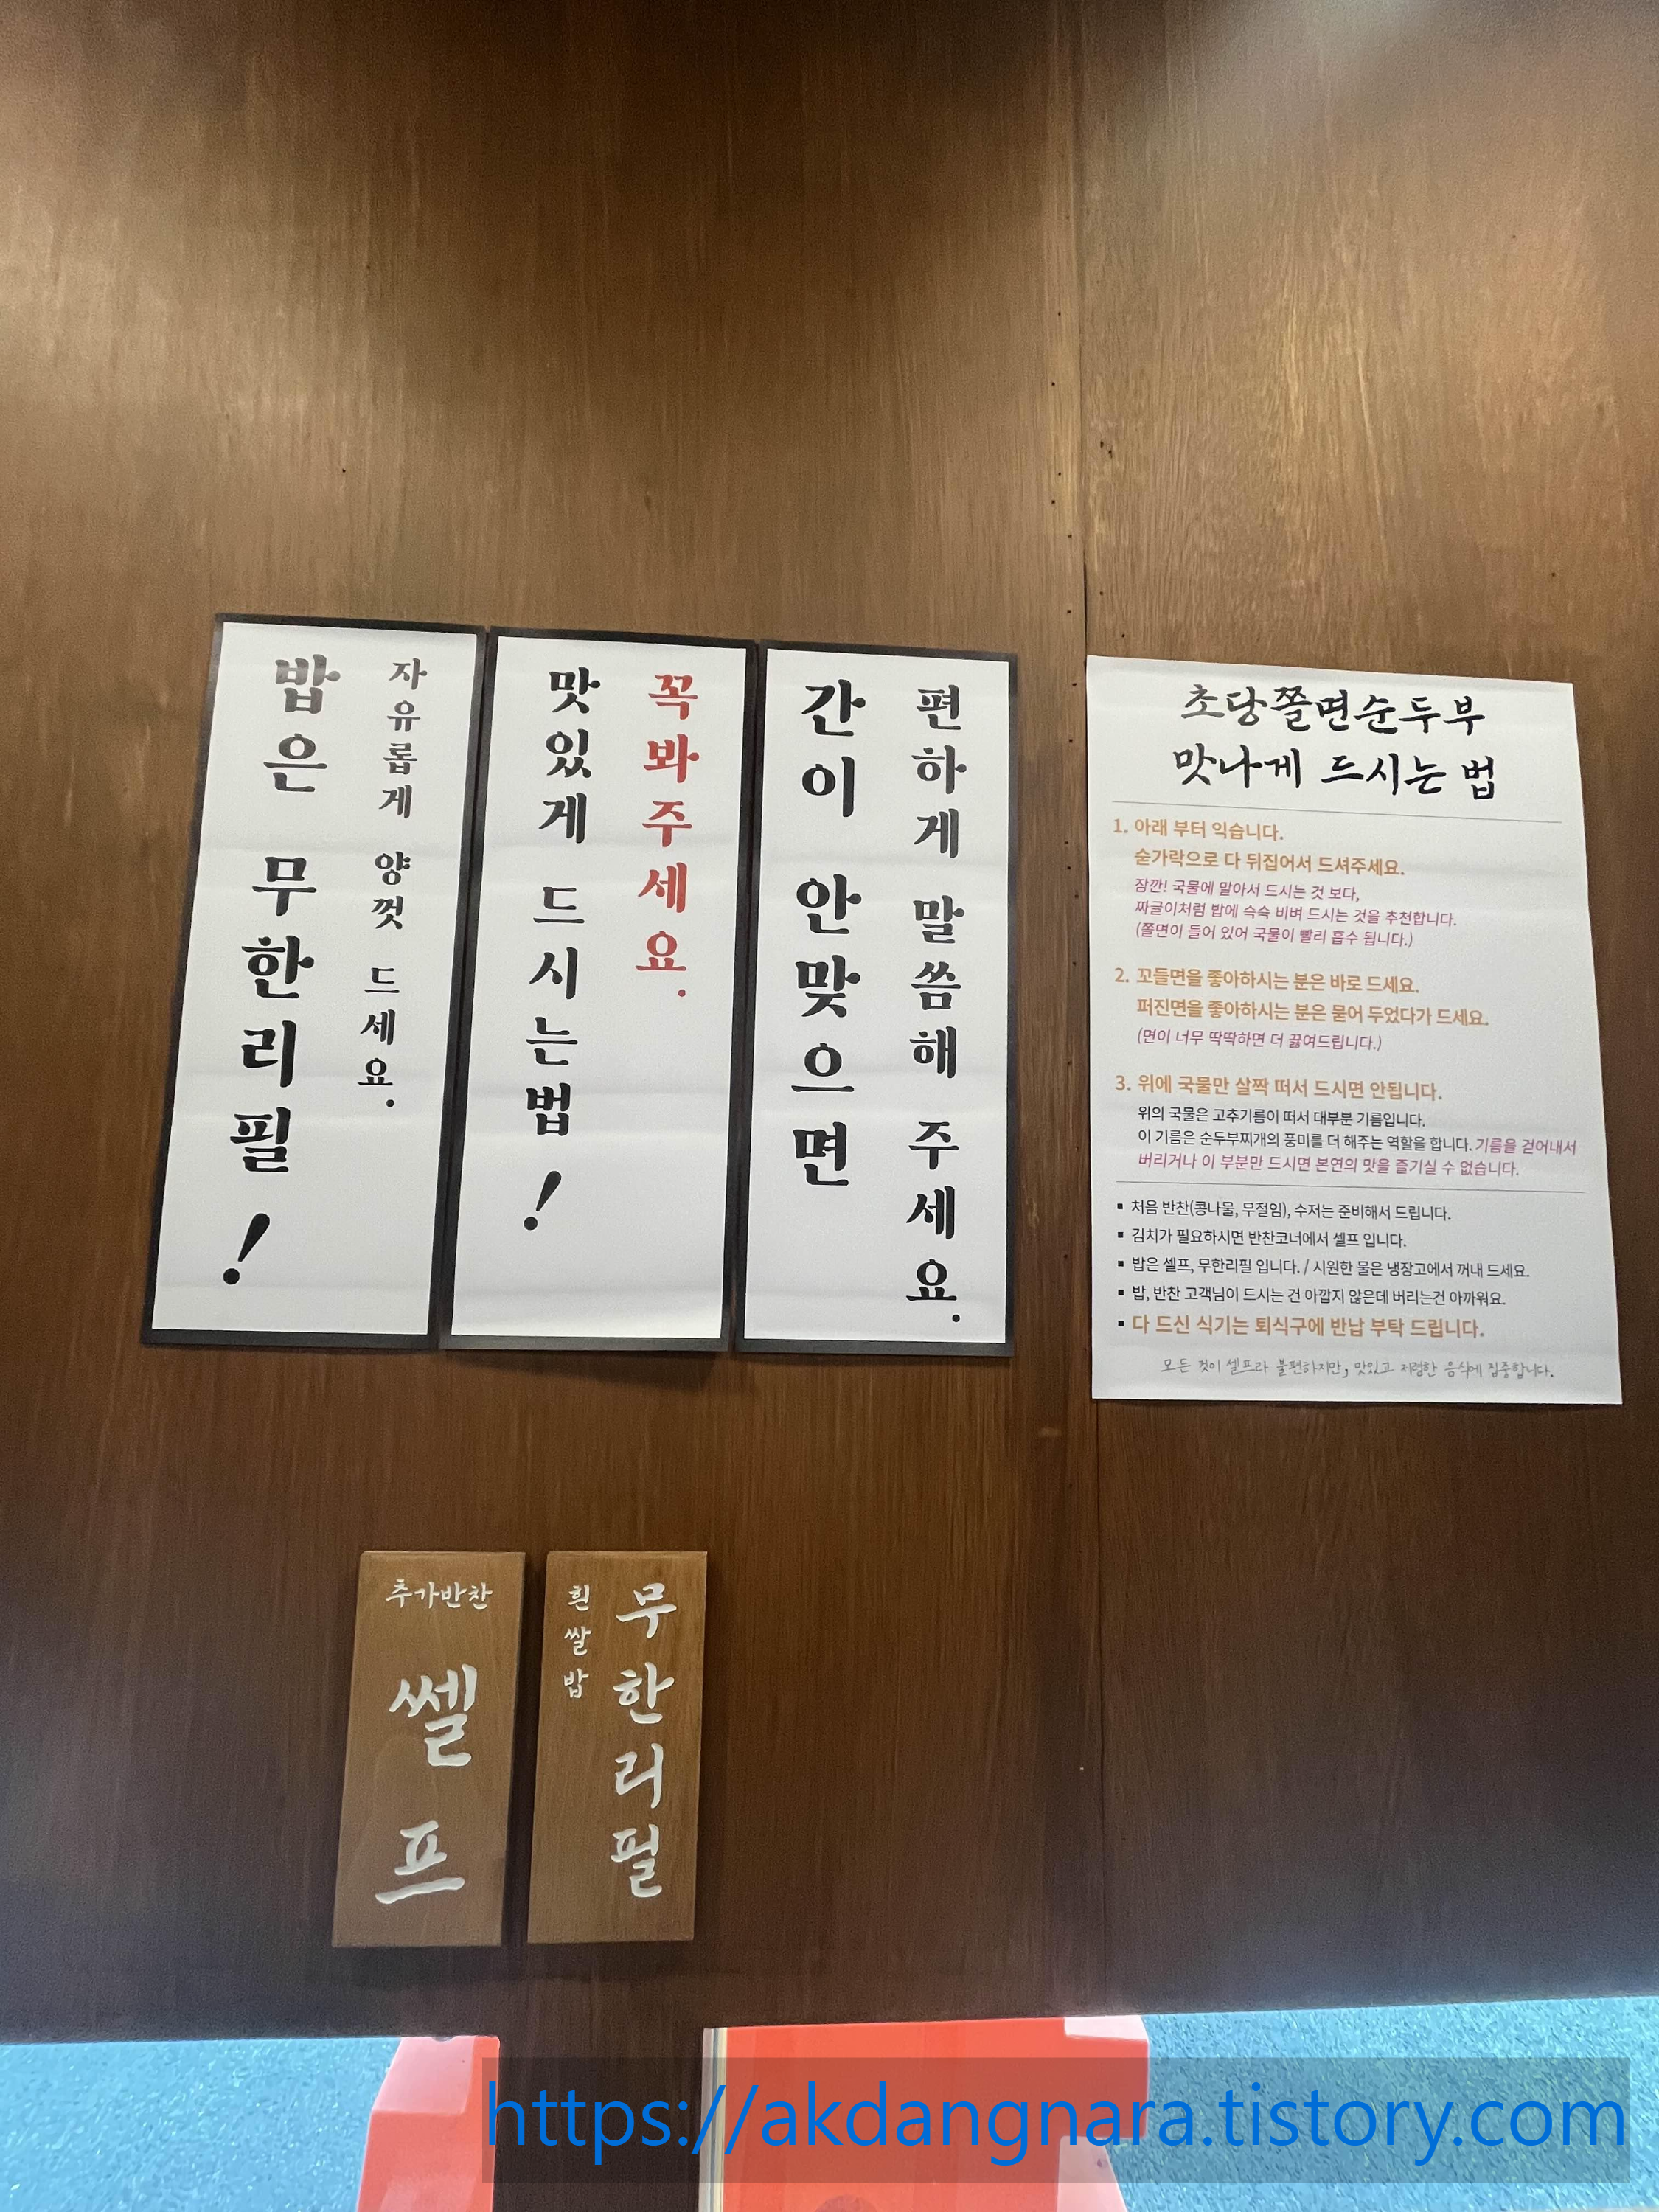 밥은 무한리필!
자유롭게 양껏 드세요.
맛있게 드시는법!
꼭봐주세요.
간이 안맞으면
편하게 말씀해 주세요.
초당쫄면순두부
맛나게 드시는 법
1. 아래 부터 익습니다.
숟가락으로 다 뒤집어서 드셔주세요.
잠깐! 국물에 말아서 드시는 것 보다,
짜글이처럼 밥에 슥슥 비벼 드시는 것을 추천합니다.
(쫄면이 들어 있어 국물이 빨리 흡수 됩니다.)
2. 꼬들면을 좋아하시는 분은 바로 드세요.
퍼진면을 좋아하시는 분은 묻어 두었다가 드세요.
(면이 너무 딱딱하면 더 끓여드립니다.)
3. 위에 국물만 살짝 떠서 드시면 안됩니다.
위의 국물은 고추기름이 떠서 대부분 기름입니다.
이 기름은 순두부찌개의 풍미를 더 해주는 역할을 합니다. 기름을 걷어내서
버리거나 이 부분만 드시면 본연의 맛을 즐기실 수 없습니다.
▪ 처음 반찬(콩나물, 무절임), 수저는 준비해서 드립니다.
▪ 김치가 필요하시면 반찬코너에서 셀프 입니다.
▪ 밥은 셀프, 무한리필 입니다. / 시원한 물은 냉장고에서 꺼내 드세요.
▪ 밥, 반찬 고객님이 드시는 건 아깝지 않은데 버리는건 아까워요.
▪ 다 드신 식기는 퇴식구에 반납 부탁 드립니다.
모든 것이 셀프라 불편하지만, 맛있고 저렴한 음식에 집중합니다.
추가반찬
쎌프
흰쌀밥
무한리필
https://akdangnara.tistory.com